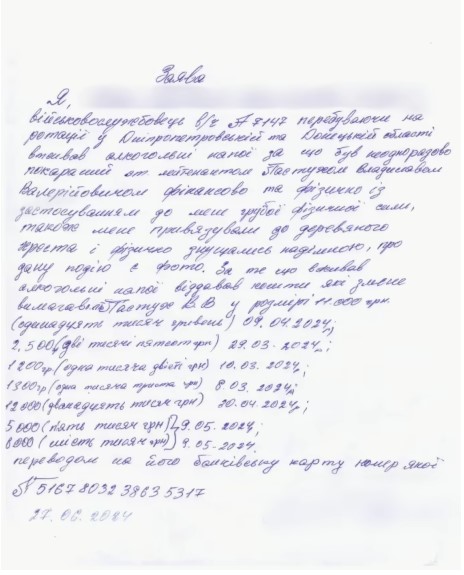 Заява
Я,
військовослужбовець в/ч А7147 перебуваючи на
ротації у Дніпропетровській та Донецькій області
вживав алкогольні напої за що був неодноразово
покараний ст лейтенантом Пастухом Владиславом
Валерійовичом фінансово та фізично із
застосуванням до мене грубої фізичної сили,
також мене привязували до деревяного
хреста і фізично знущались надімною, про
дану подію є фото. За те що вживав
алкогольні напої віддавав кошти які змене
вимагав Пастух В.В у розмірі 11.000 грн.
(одинадцять тисяч гривень) 09.04.2024;
2.500 (дві тисячі пятсот грн) 29.03.2024;
1200гр (одна тисяча двісті грн) 10.03.2024;
1300гр (одна тисяча триста грн) 8 03.2024;
12000 (дванадцять тисяч грн) 20.04.2024;
5 000 (пять тисяч грн) 9.05.2024;
6000 (шість тисяч грн) 9.05-2024.
переводом на його банківську карту номер якої
№ 5167 8032 3863 5317
27.06.2024